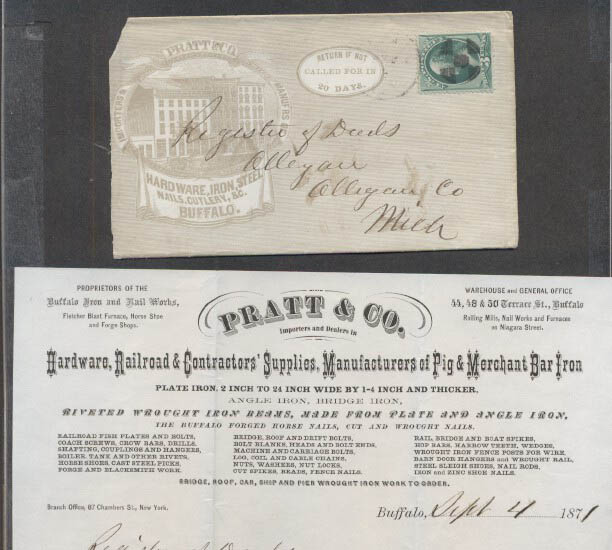 PRATT & CO.
IMPORTERS &
MANUFRS OF
HARDWARE, IRON, STEEL
NAILS, CUTLERY, &C.
BUFFALO.
RETURN IF NOT
CALLED FOR IN
20 DAYS.
Register of Deeds
Allegan
Allegan Co
Mich
PROPRIETORS OF THE
Buffalo Iron and Nail Works,
Fletcher Blast Furnace, Horse Shoe
and Forge Shops.
PRATT & CO.
Importers and Dealers in
WAREHOUSE and GENERAL OFFICE
44, 48 & 50 Terrace St., Buffalo
Rolling Mills, Nail Works and Furnaces
on Niagara Street.
Hardware, Railroad & Contractors' Supplies, Manufacturers of Pig & Merchant Bar Iron
PLATE IRON, 2 INCH TO 24 INCH WIDE BY 1-4 INCH AND THICKER.
ANGLE IRON, BRIDGE IRON,
RIVETED WROUGHT IRON BEAMS, MADE FROM PLATE AND ANGLE IRON,
THE BUFFALO FORGED HORSE NAILS, CUT AND WROUGHT NAILS.
RAILROAD FISH PLATES AND BOLTS,
COACH SCREWS, CROW BARS, DRILLS,
SHAFTING, COUPLINGS AND HANGERS,
BOILER, TANK AND OTHER RIVETS,
HORSE SHOES, CAST STEEL PICKS,
FORGE AND BLACKSMITH WORK.
BRIDGE, ROOF AND DRIFT BOLTS,
BOLT BLANKS, HEADS AND BOLT ENDS,
MACHINE AND CARRIAGE BOLTS,
LOG, COIL AND CABLE CHAINS,
NUTS, WASHERS, NUT LOCKS,
CUT SPIKES, BRADS, FENCE NAILS.
RAIL, BRIDGE AND BOAT SPIKES,
HOP BARS, HARROW TEETH, WEDGES,
WROUGHT IRON FENCE POSTS FOR WIRE,
BARN DOOR HANGERS and WROUGHT RAIL,
STEEL SLEIGH SHOES, NAIL RODS,
IRON and ZINC SHOE NAILS.
BRIDGE, ROOF, CAR, SHIP AND PIER WROUGHT IRON WORK TO ORDER.
Branch Office, 87 Chambers St., New York.
Buffalo, Sept 4 1871
Register of